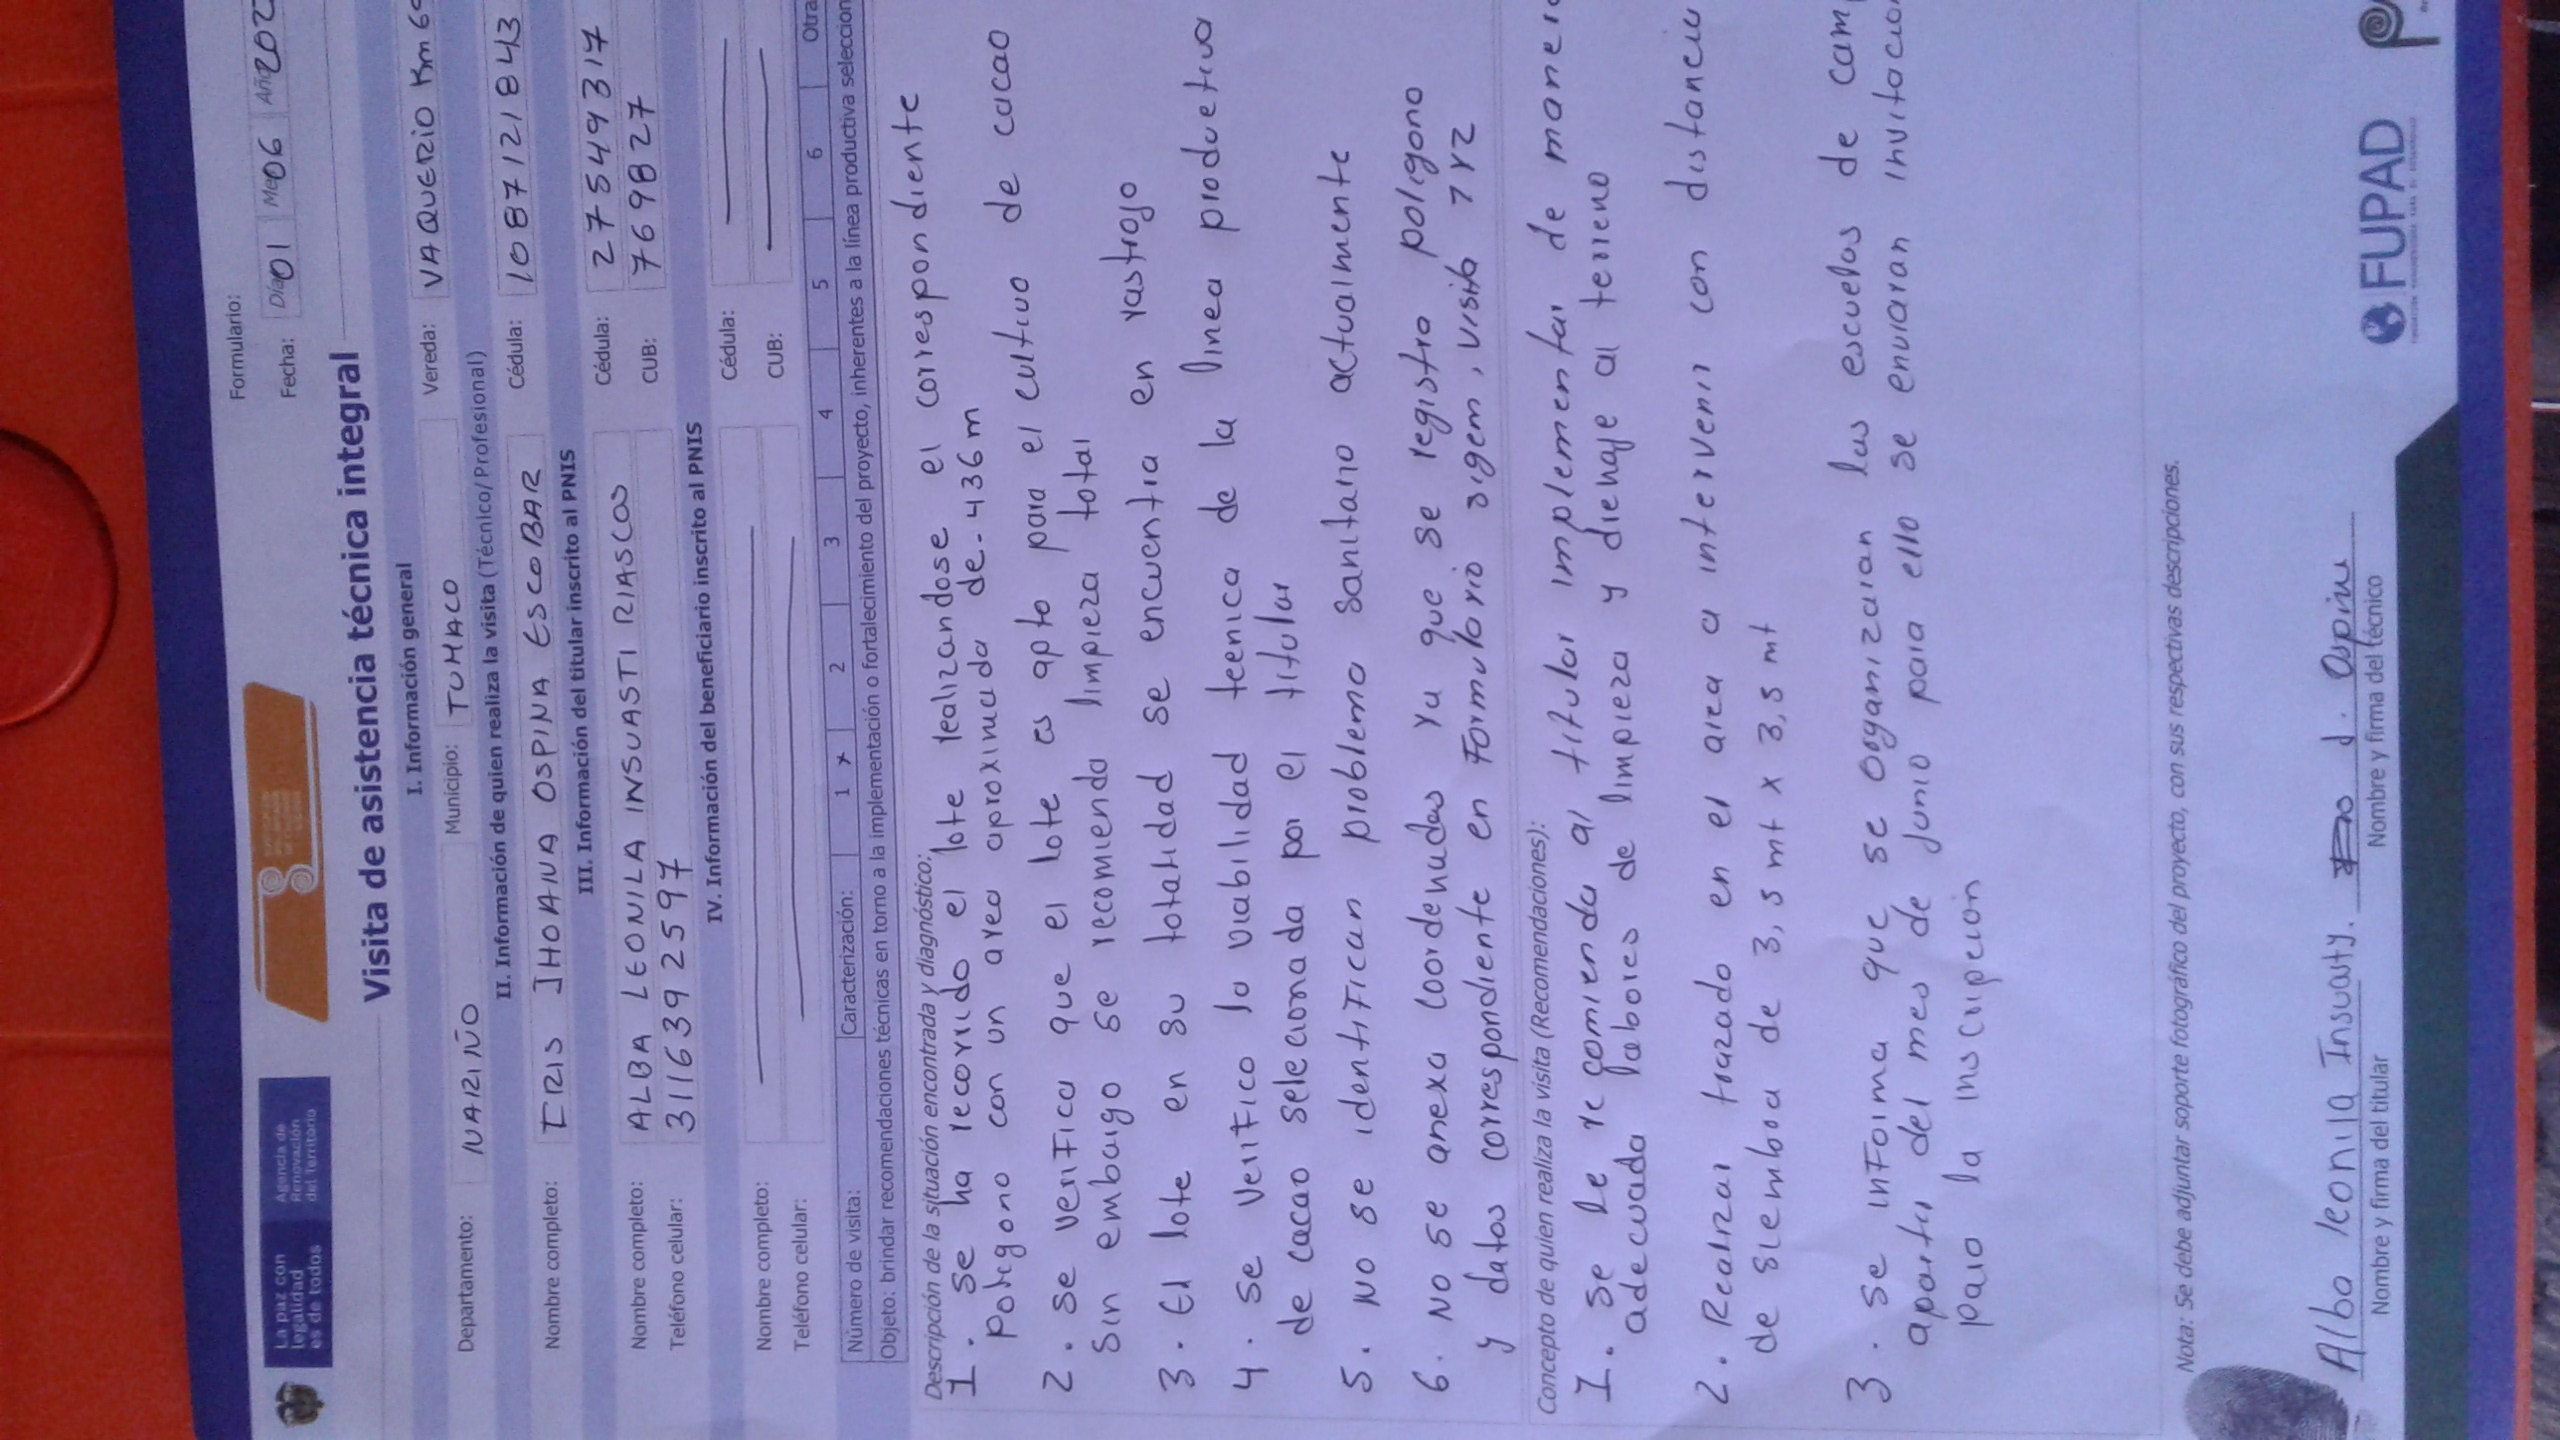 La paz con
legalidad
es de todos
Agencia de
Renovación
del Territorio
Formulario:
Fecha: Día 01 Mes 06 Año 202
Visita de asistencia técnica integral
I. Información general
Departamento: NARIÑO Municipio: TUMACO Vereda: VAQUERIO Km 6
II. Información de quien realiza la visita (Técnico/Profesional)
Nombre completo: IRIS JHOANA OSPINA ESCOBAR Cédula: 1087121843
III. Información del titular inscrito al PNIS
Nombre completo: ALBA LEONILA INSUASTI RIASCOS Cédula: 27549317
Teléfono celular: 3116392597 CUB: 7698827
IV. Información del beneficiario inscrito al PNIS
Nombre completo: Cédula:
Teléfono celular: CUB:
Número de visita: Caracterización: 1 x 2 3 4 5 6 Otra
Objeto: brindar recomendaciones técnicas en torno a la implementación o fortalecimiento del proyecto, inherentes a la línea productiva seleccion
Descripción de la situación encontrada y diagnóstico:
1. Se ha recorrido el lote realizandose el correspondiente
poligono con un area aproximada de-436m
2. Se verifica que el lote es apto para el cultivo de cacao
sin embargo se recomienda limpieza total
3. El lote en su totalidad se encuentra en rastrojo
4. se verifico la viabilidad tecnica de la linea productiva
de cacao seleccionada por el titular
5. No se identifican problema sanitario actualmente
6. No se anexa coordenadas ya que se registra poligono
y datos correspondiente en Formulario sigem, visita
Concepto de quien realiza la visita (Recomendaciones):
1. se le recomienda al titular implementar de manera
adecuada labores de limpieza y drenaje al terreno
2. Realizar trazado en el area a intervenir con distancia
de siembra de 3,5 mt x 3,5 mt
3. se informa que se organizaran las escuelas de cam
apartir del mes de Junio para ello se enviaran invitacio
para la inscripcion
Nota: Se debe adjuntar soporte fotográfico del proyecto, con sus respectivas descripciones.
Alba leonila Insuaty. J. Ospina
Nombre y firma del titular Nombre y firma del técnico
FUPAD